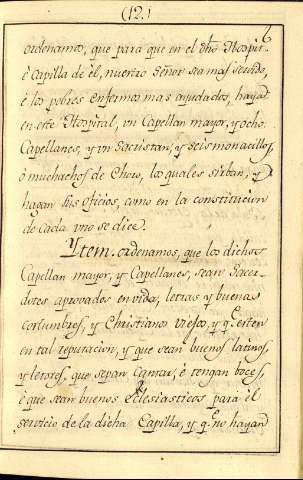 (12.)
6
ordenamos, que para que en el dho Hospit-
ê Capilla de èl, nuestro Señor sea mas servido,
ê los pobres enfermos mas ayudados, hayad
en este Hospital, vn Capellan mayor, y ocho
Capellanes, y vn Sacristan, y seis monacillos
ò muchachos de Choro, los quales sirban, y
hagan sus oficios, como en la constitucion
de cada vno se dice.
Ytem. ordenamos, que los dichos
Capellan mayor, y Capellanes, sean Sacer-
dotes aprovados en vida, letras y buenas
costumbres, y Christianos viejos, y q.e esten
en tal reputacion, y que sean buenos latinos,
y letores, que sepan Cantar, è tengan boces,
è que sean buenos Eclesiasticos para el
servicio de la dicha Capilla, y q.e no hayan